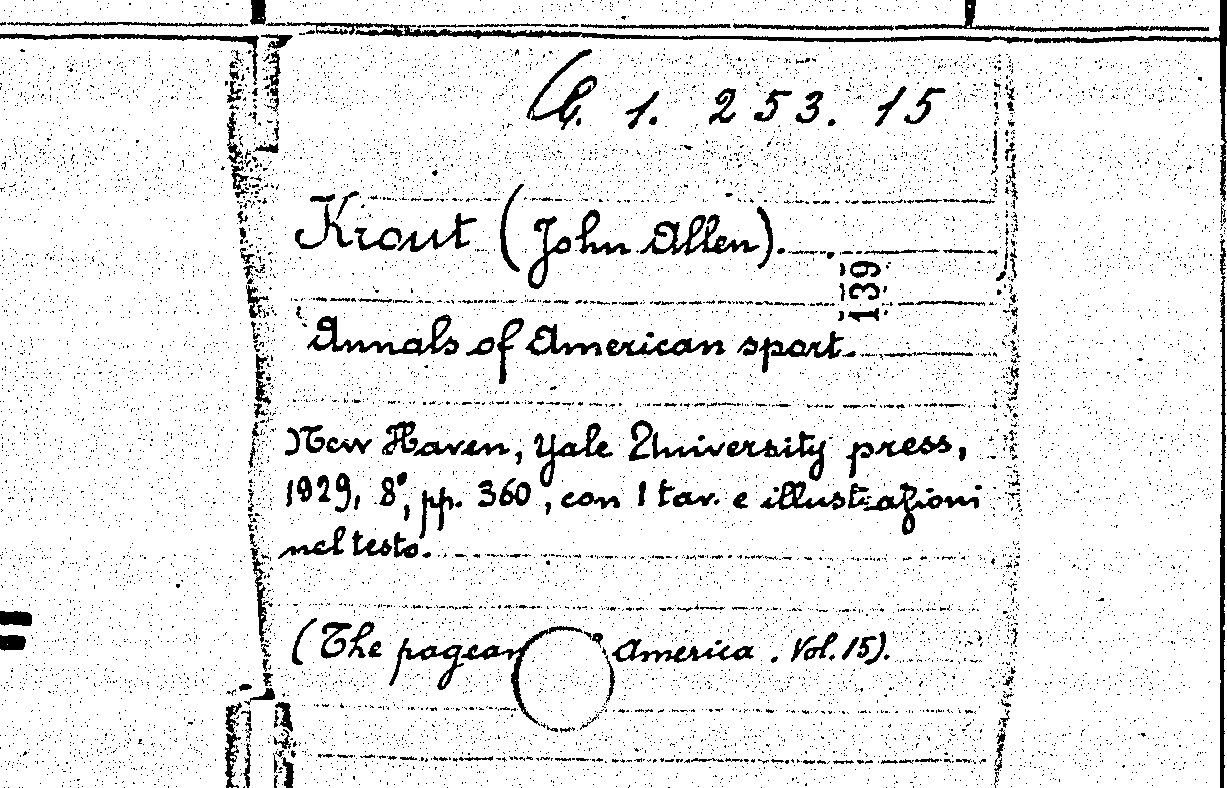 G. 1. 253. 15
Krout (John Allen).
139
Annals of American sport.
New Haven, Yale University press,
1929, 8°, pp. 360, con 1 tav. e illustrazioni
nel testo.
(The pagean America. Vol. 15).